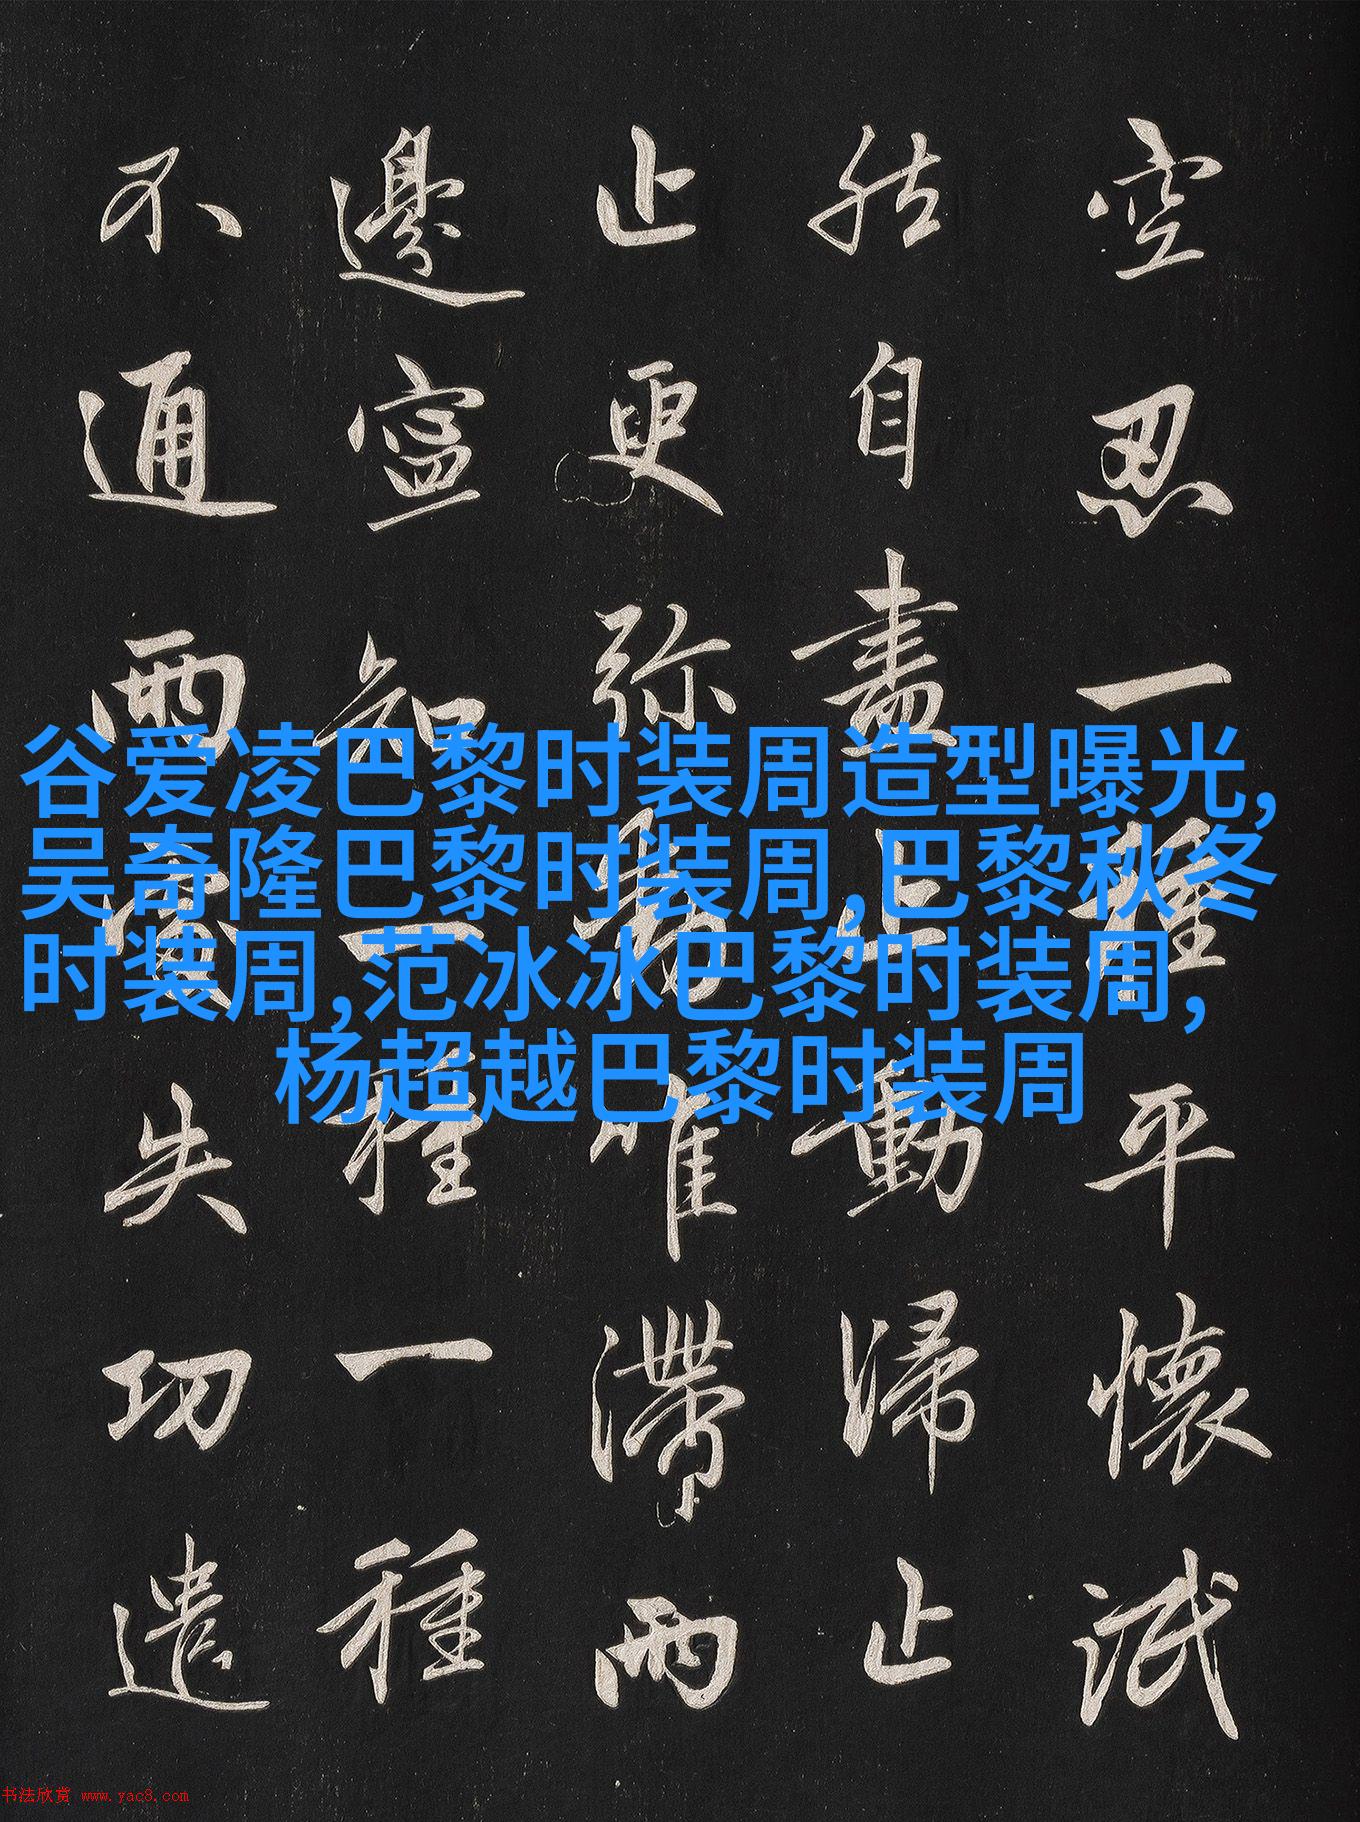 空忍一種平懷泯
然自盡止動歸止
止更弥動唯滯兩
邊寧知一種一種
不通兩處失功遣
谷爱凌巴黎时装周造型曝光,
吴奇隆巴黎时装周,巴黎秋冬
时装周,范冰冰巴黎时装周,
杨超越巴黎时装周
书法欣赏 www.yac8.com